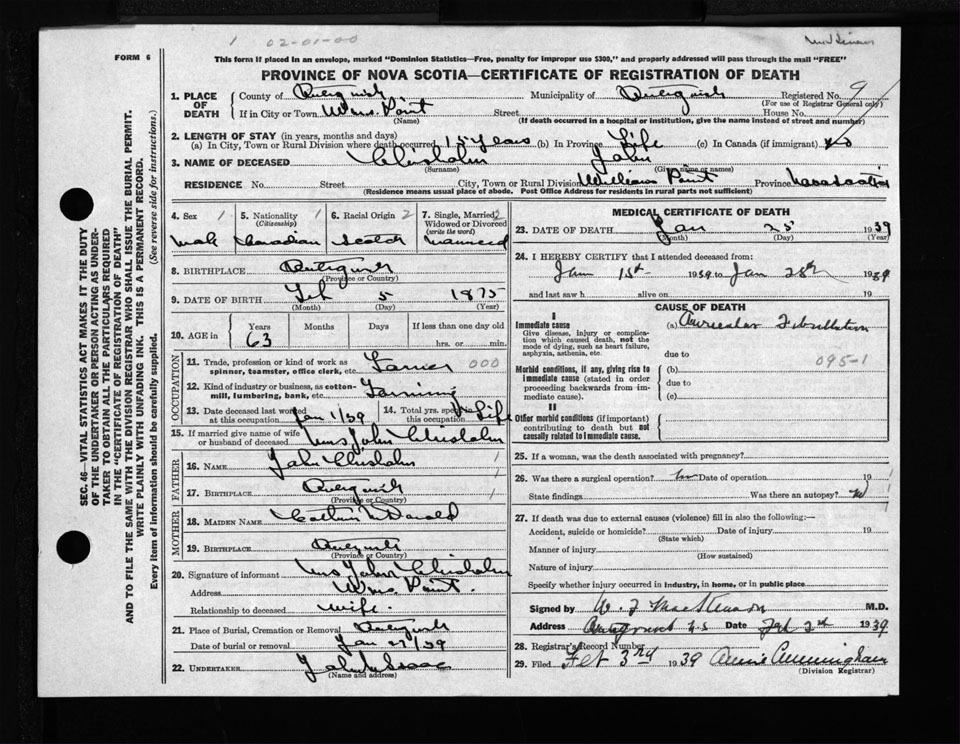 1 02-01-00
FORM 6
This form if placed in an envelope, marked "Dominion Statistics—Free, penalty for improper use $300," and properly addressed will pass through the mail "FREE"
PROVINCE OF NOVA SCOTIA—CERTIFICATE OF REGISTRATION OF DEATH
1. PLACE OF DEATH
County of Antigonish Municipality of Antigonish Registered No. 9
(For use of Registrar General only)
If in City or Town Wms. Point Street House No.
(Name) (If death occurred in a hospital or institution, give the name instead of street and number)
2. LENGTH OF STAY (in years, months and days)
(a) In City, Town or Rural Division where death occurred 15 years (b) In Province Life (c) In Canada (if immigrant)
3. NAME OF DECEASED Chisholm John
(Surname) (Given name or names)
RESIDENCE No. Street City, Town or Rural Division William Point Province Nova Scotia
(Residence means usual place of abode. Post Office Address for residents in rural parts not sufficient)
4. Sex 1 5. Nationality 1 (Citizenship) 6. Racial Origin 2 7. Single, Married 2 Widowed or Divorced (write the word)
Male Canadian Scotch Married
8. BIRTHPLACE Antigonish
(Province or Country)
9. DATE OF BIRTH Feb 5 1875
(Month) (Day) (Year)
10. AGE in Years Months Days If less than one day old
63 hrs. or min.
OCCUPATION
11. Trade, profession or kind of work as spinner, teamster, office clerk, etc. Farmer 000
12. Kind of industry or business, as cotton-mill, lumbering, bank, etc. Farming
13. Date deceased last worked at this occupation Jan 1/39 14. Total yrs. spent in this occupation Life
15. If married give name of wife or husband of deceased Mrs John Chisholm
FATHER
16. NAME John Chisholm 1
17. BIRTHPLACE Antigonish 1
(Province or Country)
MOTHER
18. MAIDEN NAME
19. BIRTHPLACE Antigonish
(Province or Country)
20. Signature of informant Mrs John Chisholm
Address Wms. Point.
Relationship to deceased wife.
21. Place of Burial, Cremation or Removal Antigonish
Date of burial or removal Jan 27/39
22. UNDERTAKER
(Name and address)
MEDICAL CERTIFICATE OF DEATH
23. DATE OF DEATH Jan 25 1939
(Month) (Day) (Year)
24. I HEREBY CERTIFY that I attended deceased from:
Jan 1st 1939 to Jan 25th 1939
and last saw h alive on 19
CAUSE OF DEATH
I
Immediate cause (a) Auricular Fibrillation
Give disease, injury or complication which caused death, not the mode of dying, such as heart failure, asphyxia, asthenia, etc.
due to
095-1
Morbid conditions, if any, giving rise to immediate cause (stated in order proceeding backwards from immediate cause).
(b)
due to
(c)
II
Other morbid conditions (if important) contributing to death but not causally related to immediate cause.
25. If a woman, was the death associated with pregnancy?
26. Was there a surgical operation? no Date of operation 19
State findings Was there an autopsy? no
27. If death was due to external causes (violence) fill in also the following:—
Accident, suicide or homicide? Date of injury 19
(State which)
Manner of injury
(How sustained)
Nature of injury
Specify whether injury occurred in industry, in home, or in public place
Signed by M.D.
Address Antigonish N.S Date Feb 2nd 1939
28. Registrar's Record Number
29. Filed Feb 3rd 1939 Annie Cunningham
(Division Registrar)
SEC. 46—VITAL STATISTICS ACT MAKES IT THE DUTY
OF THE UNDERTAKER OR PERSON ACTING AS UNDER-
TAKER TO OBTAIN ALL THE PARTICULARS REQUIRED
IN THE "CERTIFICATE OF REGISTRATION OF DEATH"
AND TO FILE THE SAME WITH THE DIVISION REGISTRAR WHO SHALL ISSUE THE BURIAL PERMIT.
WRITE PLAINLY WITH UNFADING INK. THIS IS A PERMANENT RECORD.
Every item of information should be carefully supplied. (See reverse side for instructions.)